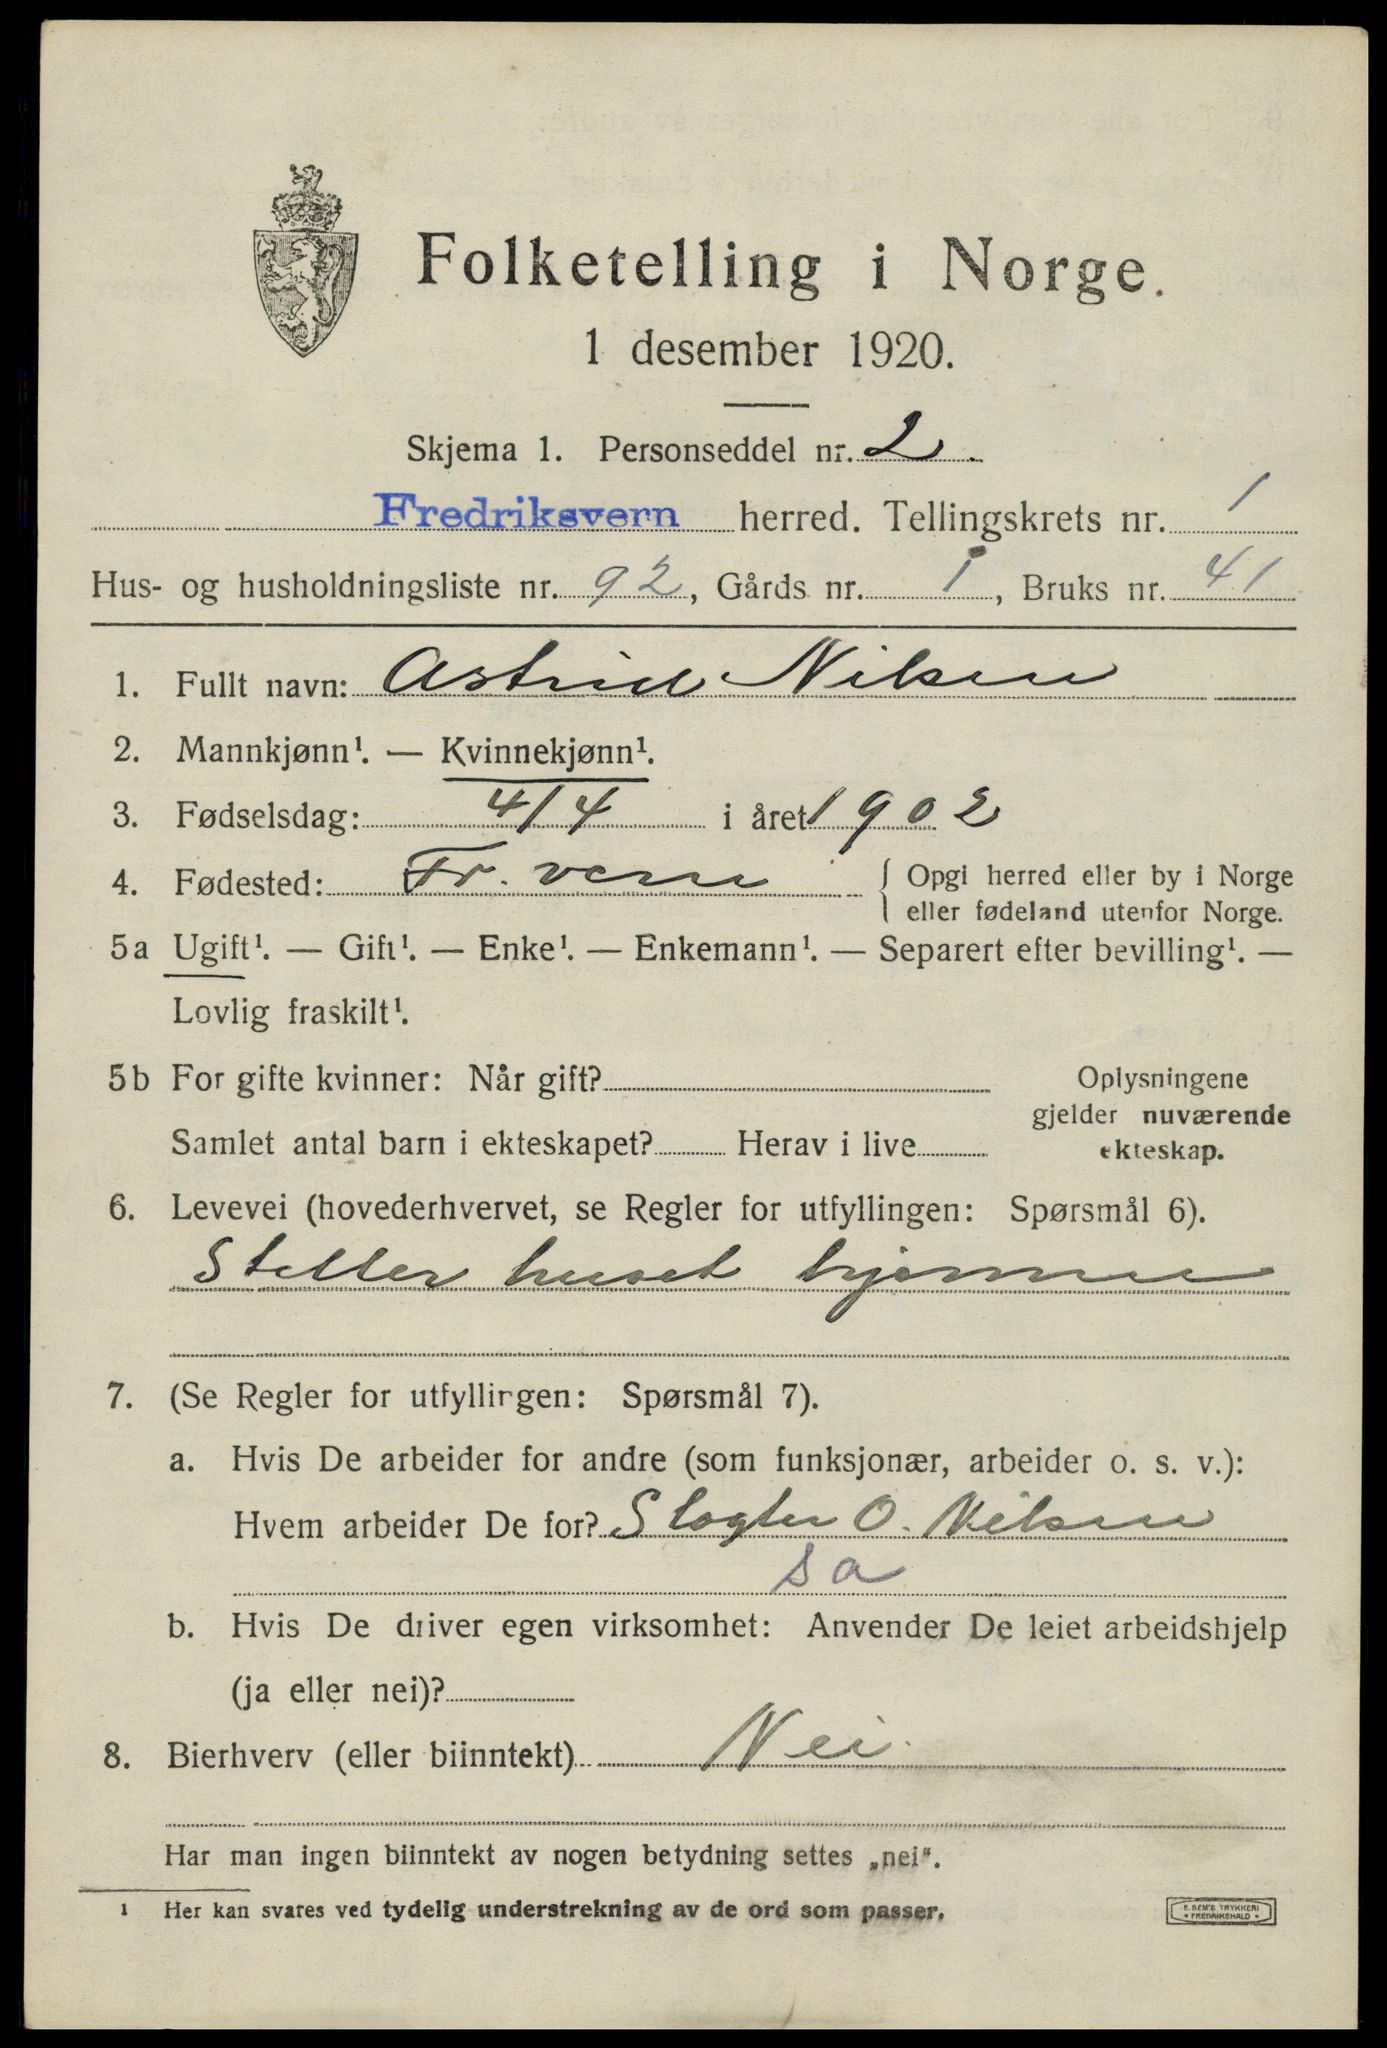 Folketelling i Norge.
1 desember 1920.
Skjema 1. Personseddel nr. 2.
Fredriksvern herred. Tellingskrets nr. 1
Hus- og husholdningsliste nr. 92, Gårds nr. 1, Bruks nr. 41
1. Fullt navn: Astrid Nilsen
2. Mannkjønn¹. — Kvinnekjønn¹.
3. Fødselsdag: 4/4 i året 1902
4. Fødested: Fr. vern { Opgi herred eller by i Norge
eller fødeland utenfor Norge.
5a Ugift¹. — Gift¹. — Enke¹. — Enkemann¹. — Separert efter bevilling¹. —
Lovlig fraskilt¹.
5b For gifte kvinner: Når gift? Oplysningene
gjelder nuværende
Samlet antal barn i ekteskapet? Herav i live ekteskap.
6. Levevei (hovederhvervet, se Regler for utfyllingen: Spørsmål 6).
Steller huset hjemme
7. (Se Regler for utfyllingen: Spørsmål 7).
a. Hvis De arbeider for andre (som funksjonær, arbeider o. s. v.):
Hvem arbeider De for? Slagter O. Nilsen
sa
b. Hvis De driver egen virksomhet: Anvender De leiet arbeidshjelp
(ja eller nei)?
8. Bierhverv (eller biinntekt) Nei.
Har man ingen biinntekt av nogen betydning settes „nei“.
1 Her kan svares ved tydelig understrekning av de ord som passer.
E. SEM'S TRYKKERI
• FREDRIKSHALD •